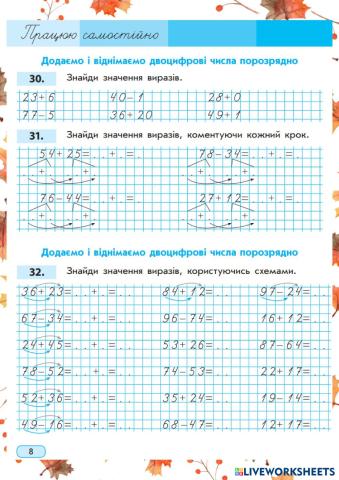 Працюю самостійно
Додаємо і віднімаємо двоцифрові числа порозрядно
30. Знайди значення виразів.
23+6 40-1 28+0
77-5 36+20 49+1
31. Знайди значення виразів, коментуючи кожний крок.
54+25=..+.=.. 78-34=..+.=..
+ + + +
76-44=..+.=.. 27+12=..+.=..
+ + + +
Додаємо і віднімаємо двоцифрові числа порозрядно
32. Знайди значення виразів, користуючись схемами.
36+23=..+.=.. 84+12=.. 97-24=..
67-34=..+.=.. 96-74=.. 16+12=..
24+45=..+.=.. 53+26=.. 87-64=..
78-52=..+.=.. 74-53=.. 22+17=..
52+36=..+.=.. 35+24=.. 19-14=..
49-16=..+.=.. 68-47=.. 12+17=..
8
LIVEWORKSHEETS